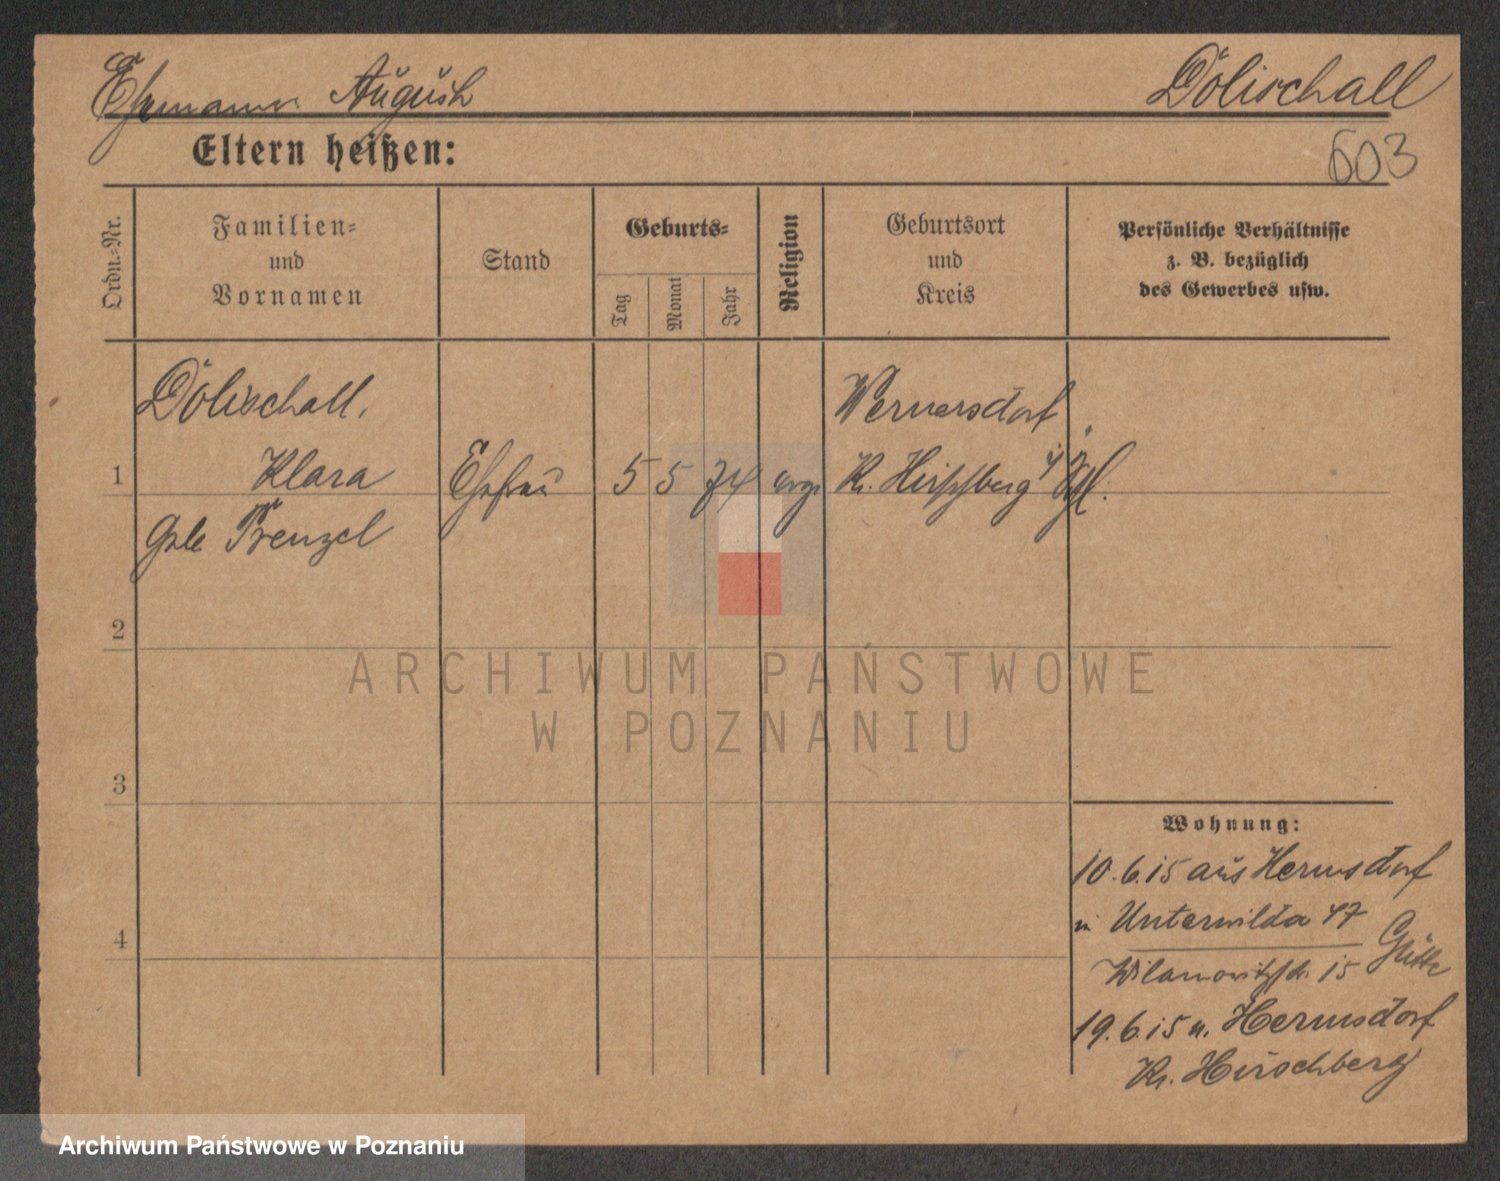 Ehemann August Dölischall
Eltern heißen:
603
Ordn.=Nr.
Familien=
und
Vornamen
Stand
Geburts=
Tag
Monat
Jahr
Religion
Geburtsort
und
Kreis
Persönliche Verhältnisse
z. B. bezüglich
des Gewerbes usw.
Dölischall,
Wernersdorf
1 Klara Ehefrau 5 5 74 evgl Kr. Hirschberg
Frenzel
2
3
4
Wohnung:
10.6.15 aus Hermsdorf
in Unterwilda 47
Wilamowitzstr. 15
19.6.15 n. Hermsdorf
Kr. Hirschberg
ARCHIWUM PAŃSTWOWE
W POZNANIU
Archiwum Państwowe w Poznaniu